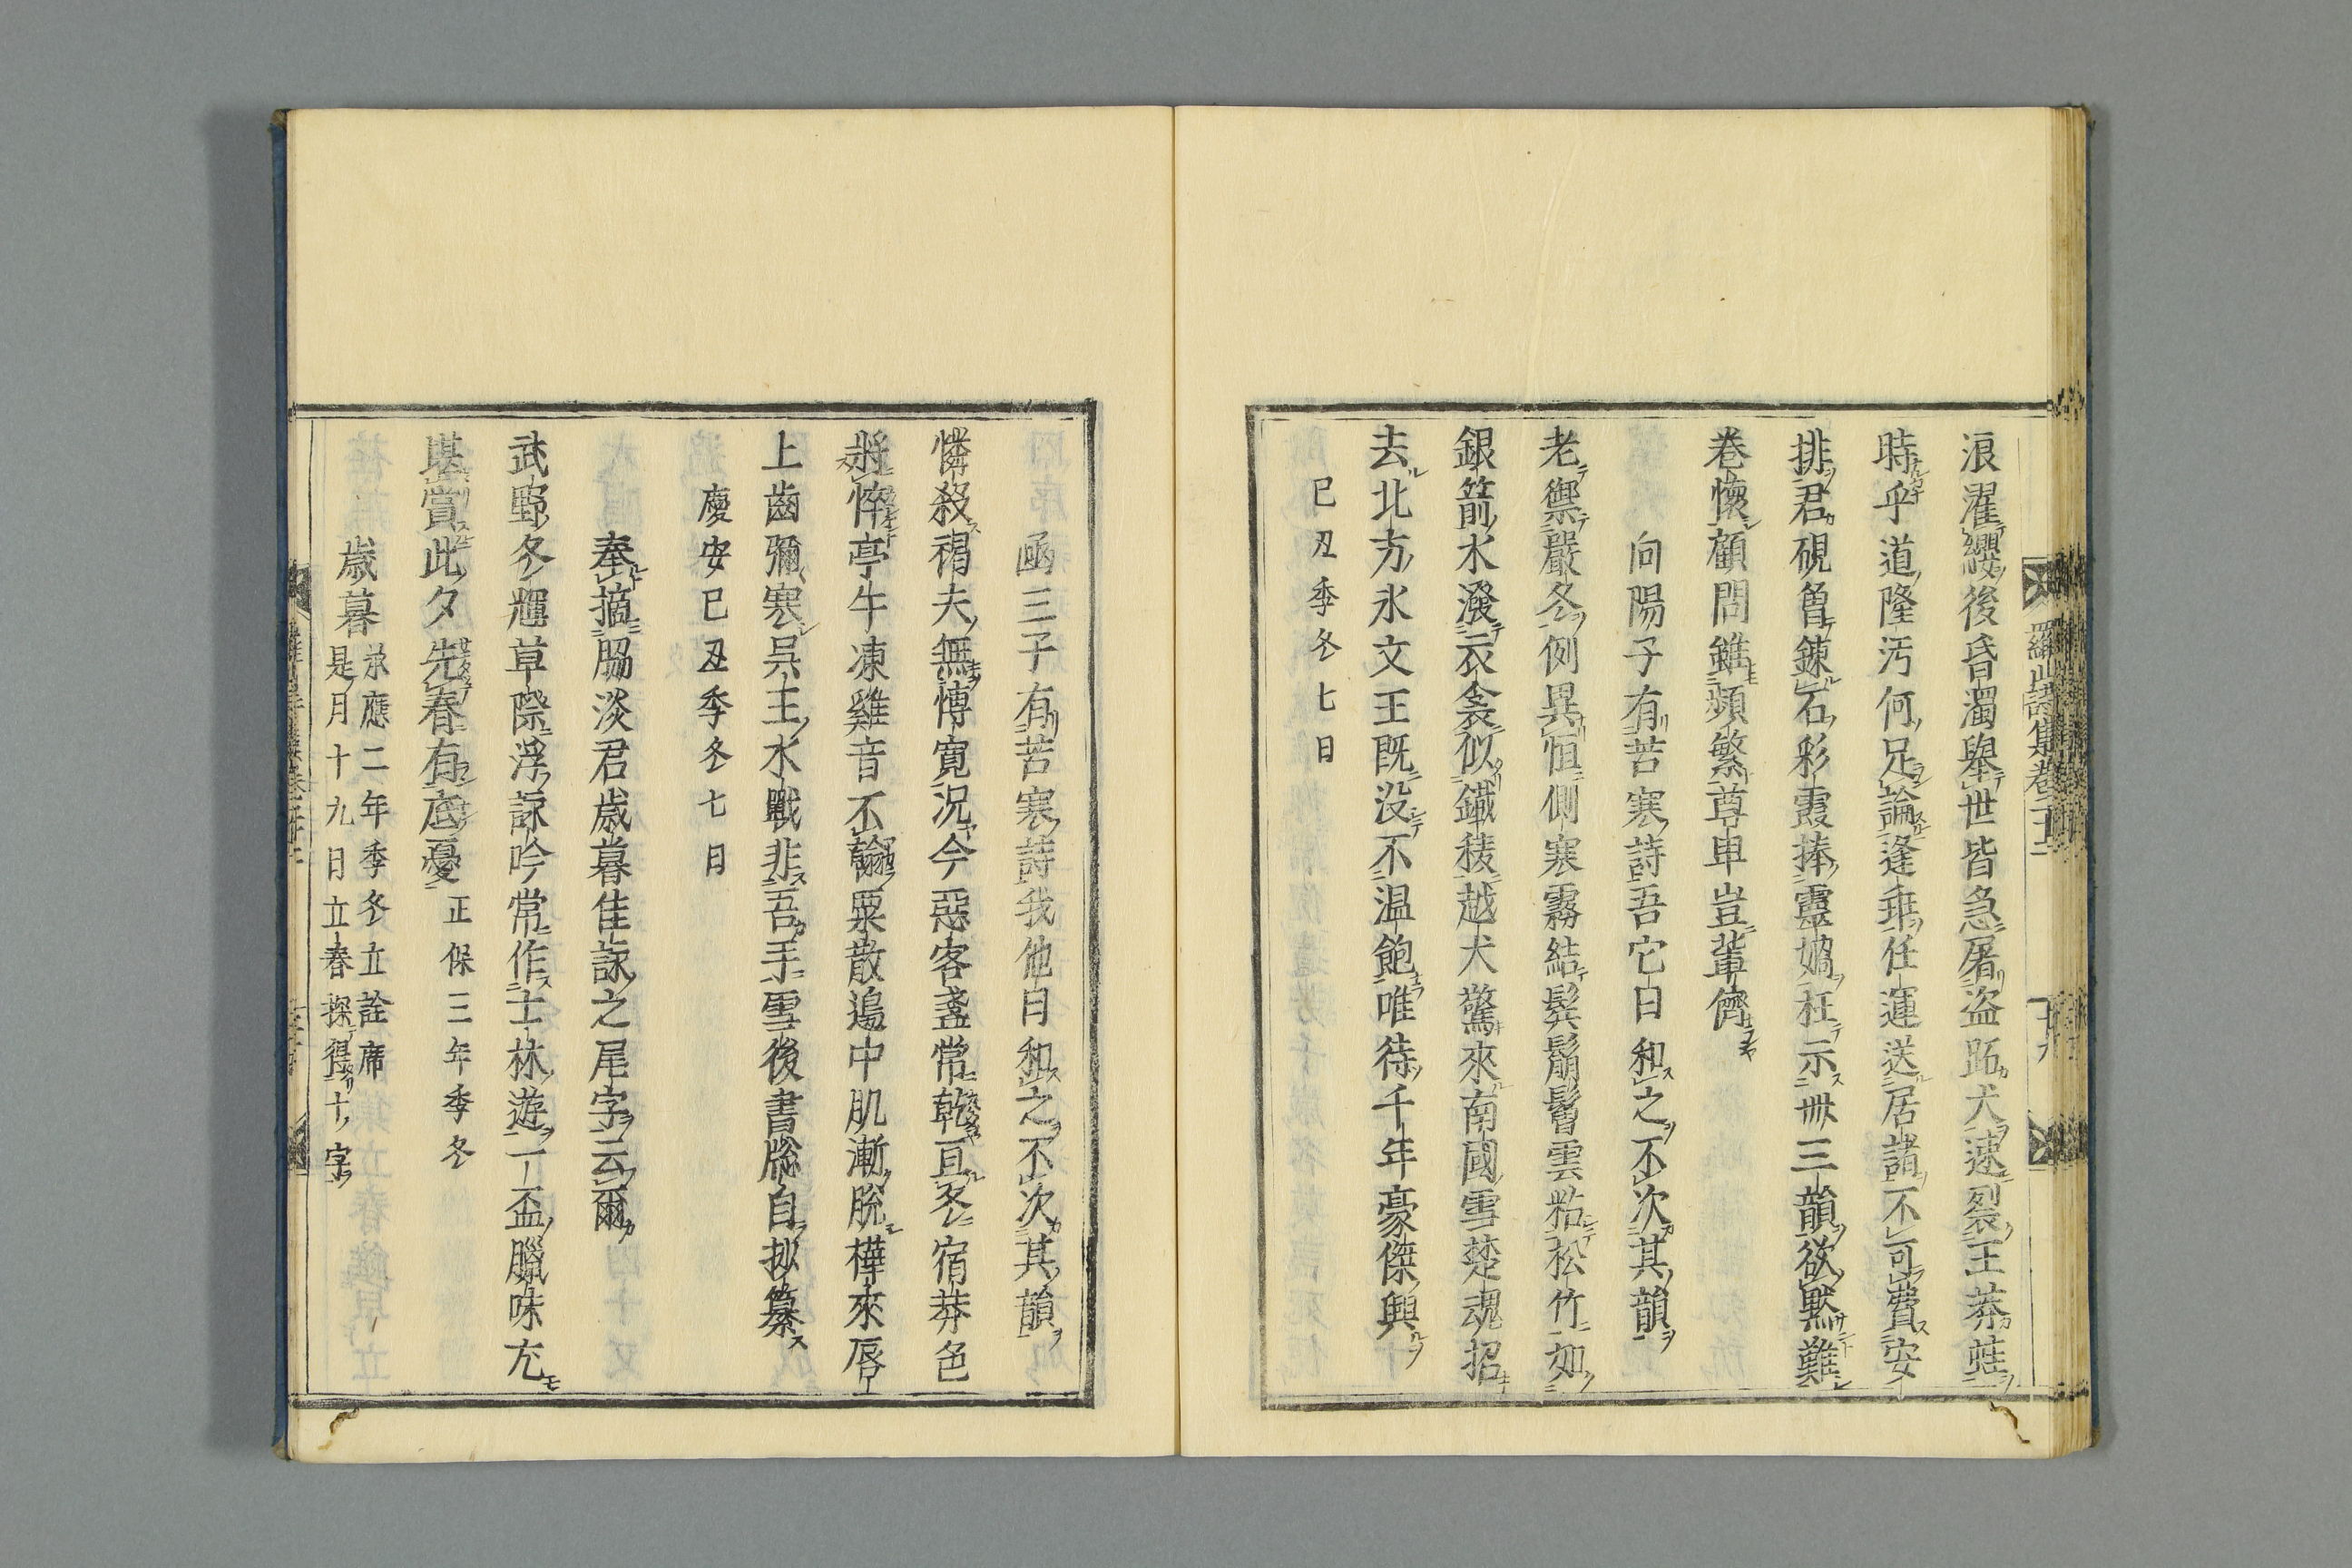 浪濯纓後昏濁擧世皆急屠盜跖犬速裂王莽蛙
時乎道隆汚何足論逢乖任運送居諸不可貲安
排君硯魯錬石彩霞捧靈媧枉示冊三韻欲默難
卷懷顧問雖頻繁尊申豈輩儕
向陽子有苦寒詩吾它日和之不次其韻
老禦嚴冬例異恒側寒霧結鬓鬅鬙雲粘松竹如
銀箭水潑衣衾似鐵稜越犬驚來南國雪楚魂招
去北方氷文王既沒不温飽唯待千年豪傑興
己丑季冬七日
羅山詩集卷二十二
函三子有苦寒詩我他日和之不次其韻
憐殺褐夫無博寛况今惡客盞常乾亘冬宿莽色
將悴亭午凍雞音不翰粟散過中肌漸脱樺來唇
上齒彌寒呉王水戰非吾手雪後書牕自抄纂
慶安己丑季冬七日
奉摘脇淡君歳暮佳詠之尾字云爾
武野冬尫草際浮詠吟常作士林遊一盃臘味尤
堪賞此夕先春有底憂 正保三年季冬
歳暮 承應二年季冬立詮席
是月十九日立春探得十字